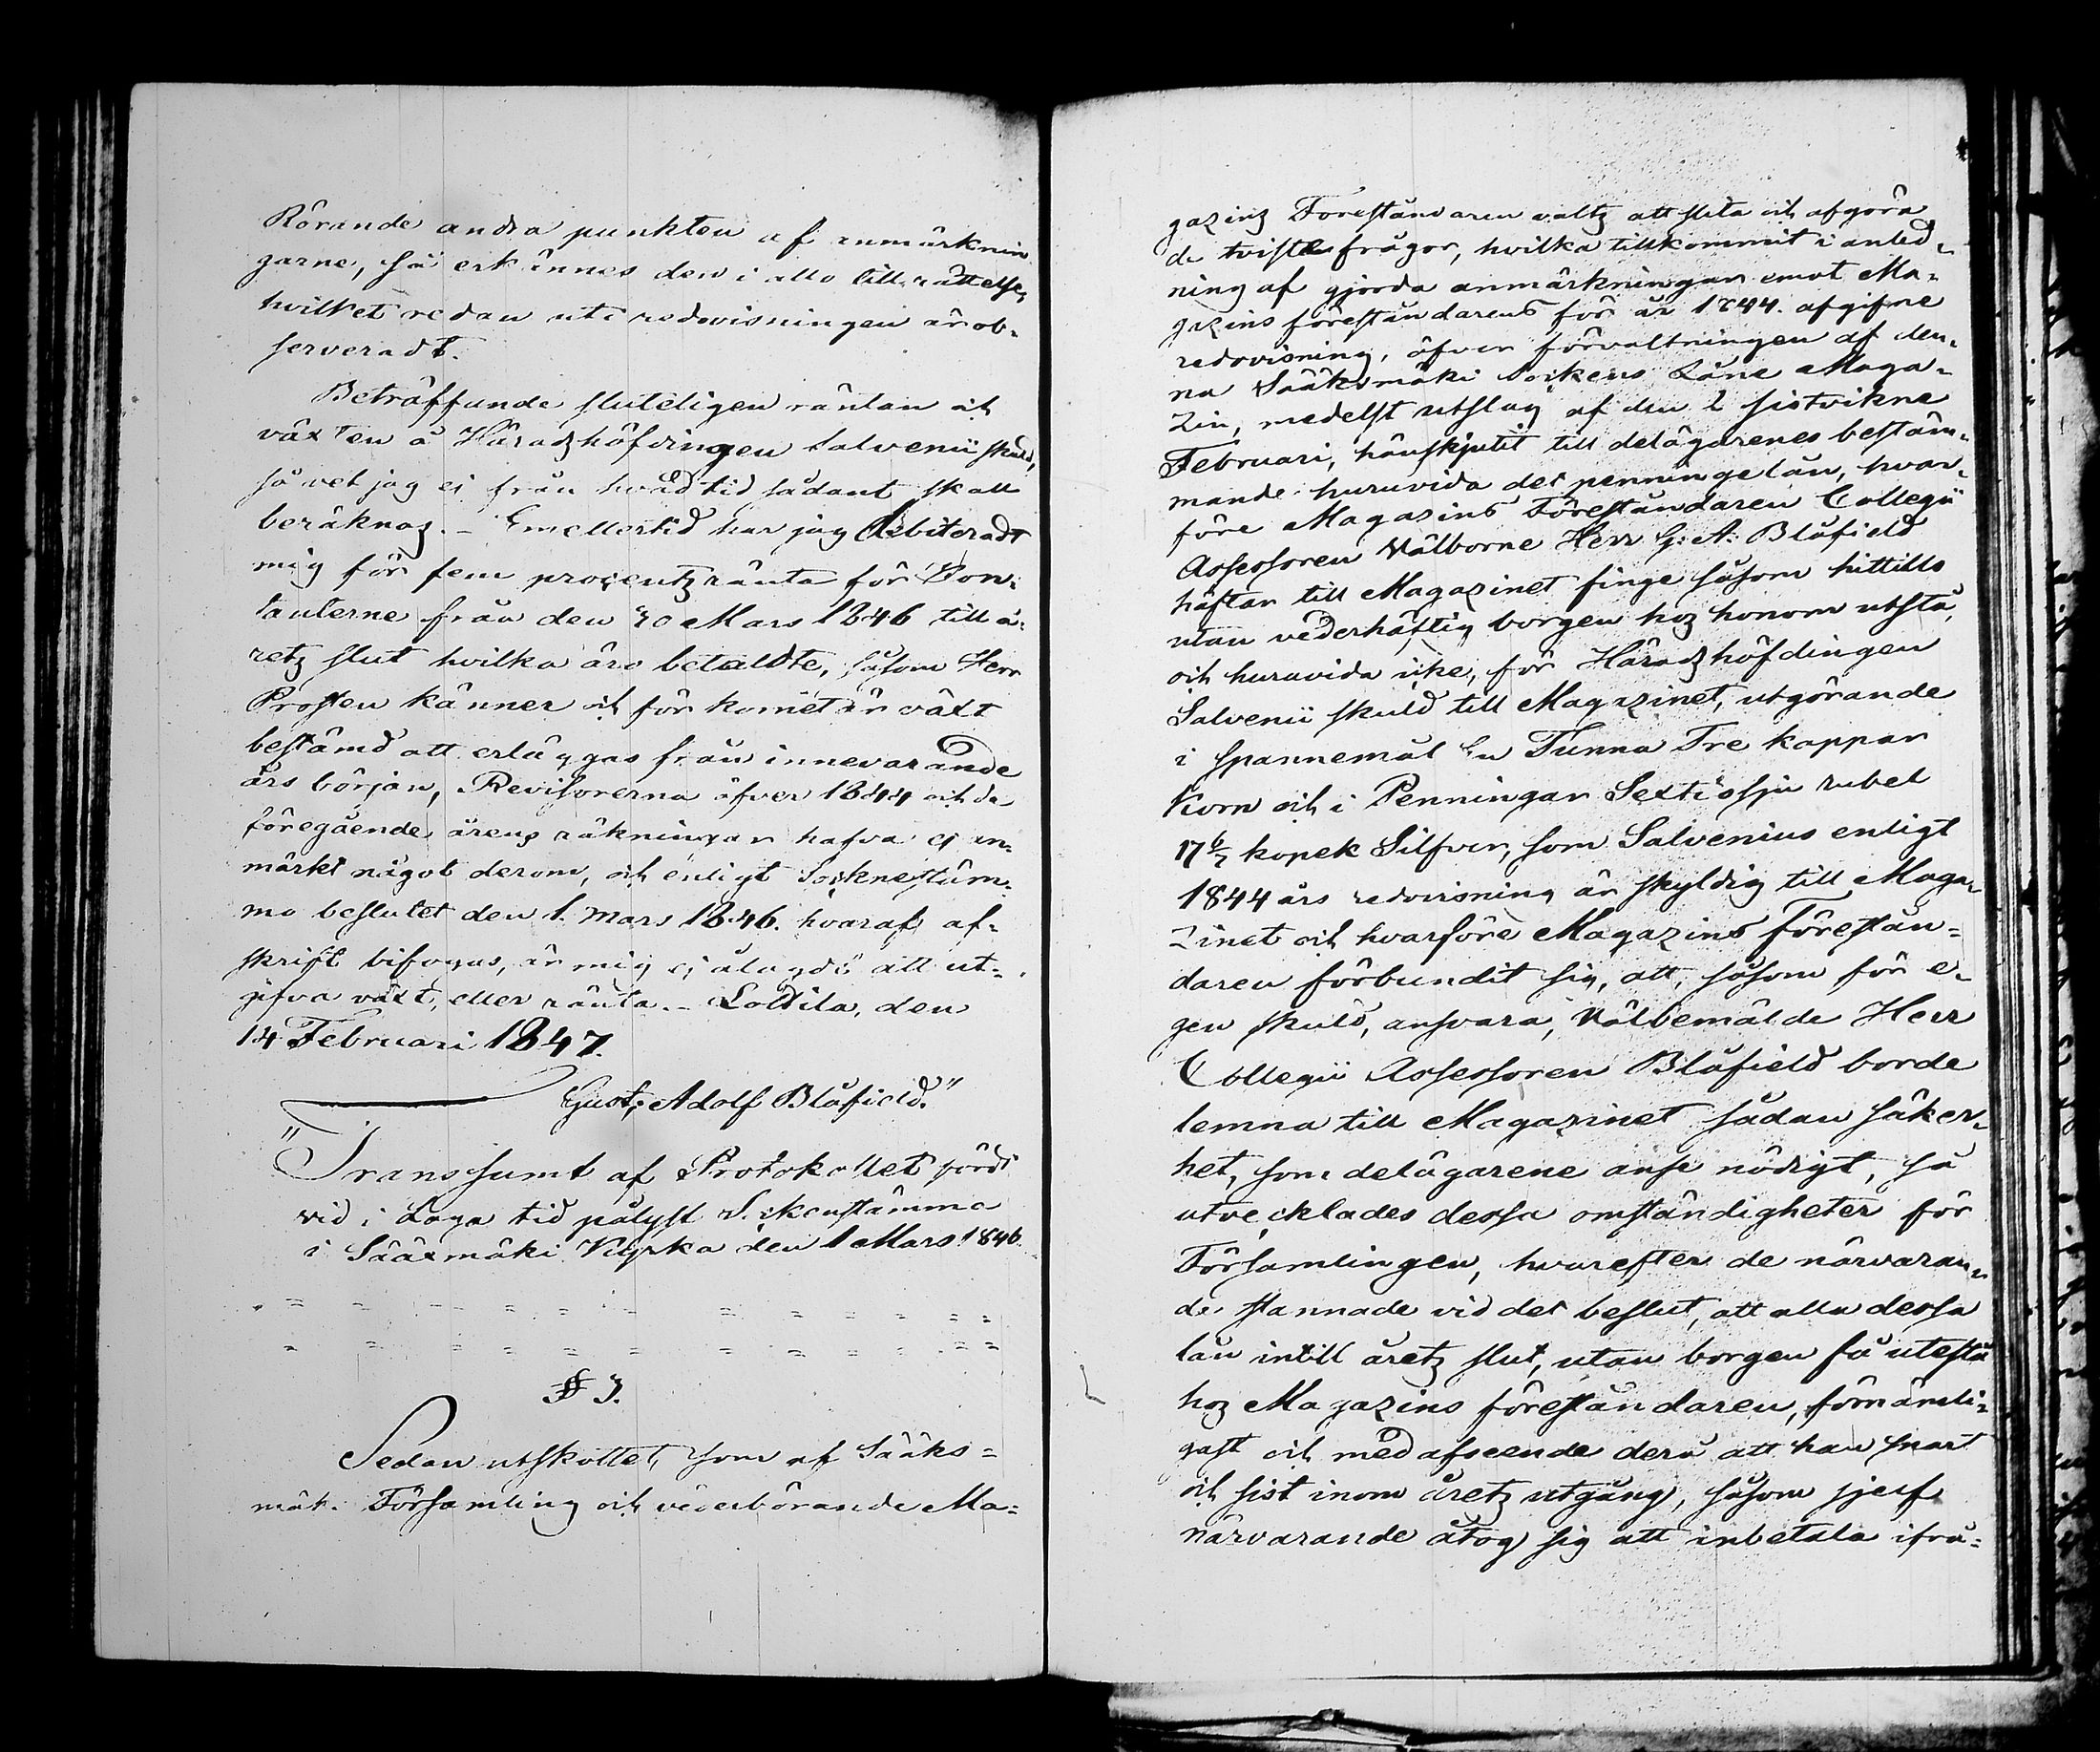 Rörande andra punkten af anmärknin
garne, så erkännes den i allo till rättelse,
hvilket redan uti redovisningen är ob-
serveradt.
Beträffande sluteligen räntan och
växten å Häradzhöfdingen Salvenii skuld,
så vet jag ej från hvad tid sådant skall
beräknas. - Emellertid har jag debiteradt
mig för fem procentz ränta för Con-
tanterne från den 30 Mars 1846 till å-
retz slut hvilka äro betaldte, såsom Herr
Prosten känner och för kornet är växt
bestämd att erläggas från innevarande
års början, Revisorerna öfver 1844 och de
föregående årens räkningar hafva ej an-
märkt något derom, och enligt Socknestäm-
mo beslutet den 1. Mars 1846. hvaraf af-
skrift bifogas, är mig ej ålagdt att ut-
gifva växt, eller ränta. - Lottila, den
14 Februari 1847.
Gust: Adolf Blåfield."
"Transsumt af Protokollet fördt
vid i Laga tid pålyst Sockenstämma
i Sääxmäki Kyrka den 1 Mars 1846.
§ 3.
Sedan utskottet, som af Sääks=
mäki Församling och vederbörande Ma=
gazinz Föreståndaren valtz att slita och afgöra
de tvistefrågor, hvilka tillkommit i anled-
ning af gjorda anmärkningar emot Ma-
gazins föreståndarens för år 1844. afgifne
redovisning, öfver förvaltningen af den-
na Sääksmäki Sockens Låne Maga-
zin, medelst utslag af den 2 sistvikne
Februari, hänskjutit till delägarenes bestäm-
mande huruvida det penningelån, hvar-
före Magasins Föreståndaren Collegii
Assessoren Välborne Herr G: A: Blåfield
häftar till Magazinet finge såsom hittills
utan vederhäftig borgen hoz honom utstå,
och huruvida icke, för Häradzhöfdingen
Salvenii skuld till Magazinet, utgörande
i spannemål En Tunna Tre kappar
Korn och i Penningar Sextiosju rubel
17 6/7 kopek Silfver, som Salvenius enligt
1844 års redovisning är skyldig till Maga-
zinet och hvarföre Magazins Förestån=
daren förbundit sig, att, såsom för e-
gen skuld, ansvara, Välbemälde Herr
Collegii Assessoren Blåfield borde
lemna till Magazinet sådan säker-
het, som delägarene anse nödigt, så
utvecklades dessa omständigheter för
Församlingen, hvarefter de närvaran-
de stannade vid det beslut, att alla dessa
lån intill åretz slut, utan borgen få utestå
hoz Magazins föreståndaren, förnämli-
gast och med afseende derå att han snart
och sist inom åretz utgång, såsom sjelf
närvarande åtog sig att inbetala ifrå=